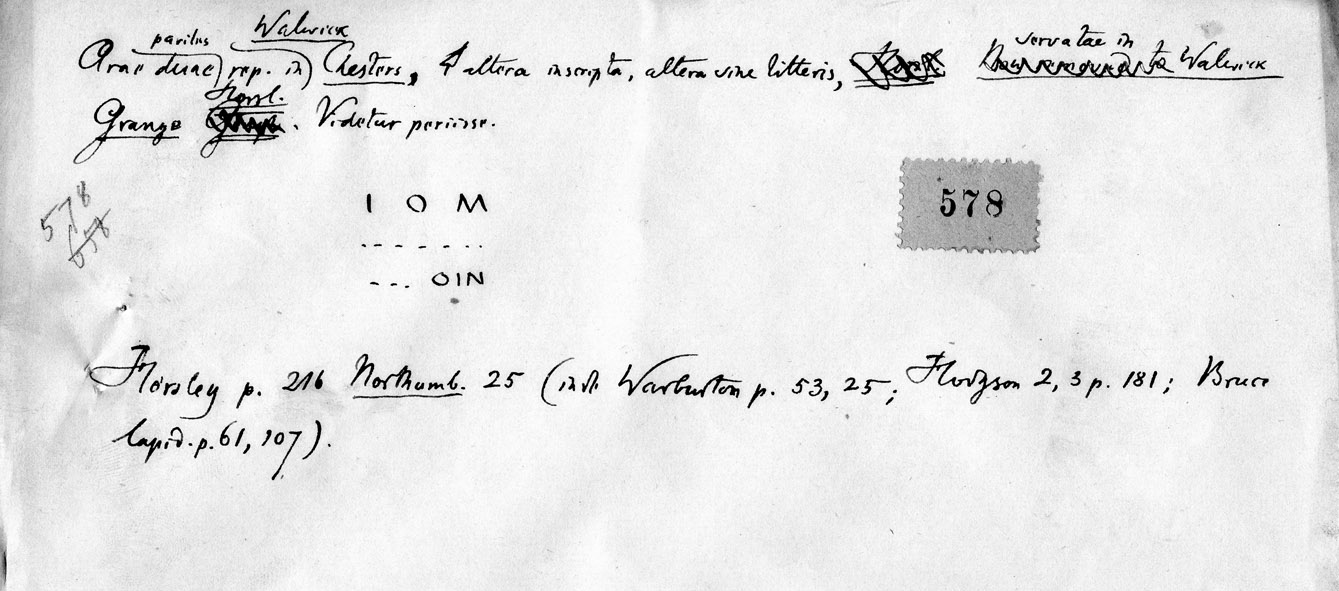 parilus Walwick
Arae duae rep. in Chesters, altera inscripta, altera sine litteris, servatae in Walwick
Grange Horsl. Videtur periisse.
578
658
I O M
. . . . . . .
. . . OIN
578
Horsley p. 216 Northumb. 25 (inde Warburton p. 53, 25; Hodgson 2, 3 p. 181; Bruce
lapid. p. 61, 107).